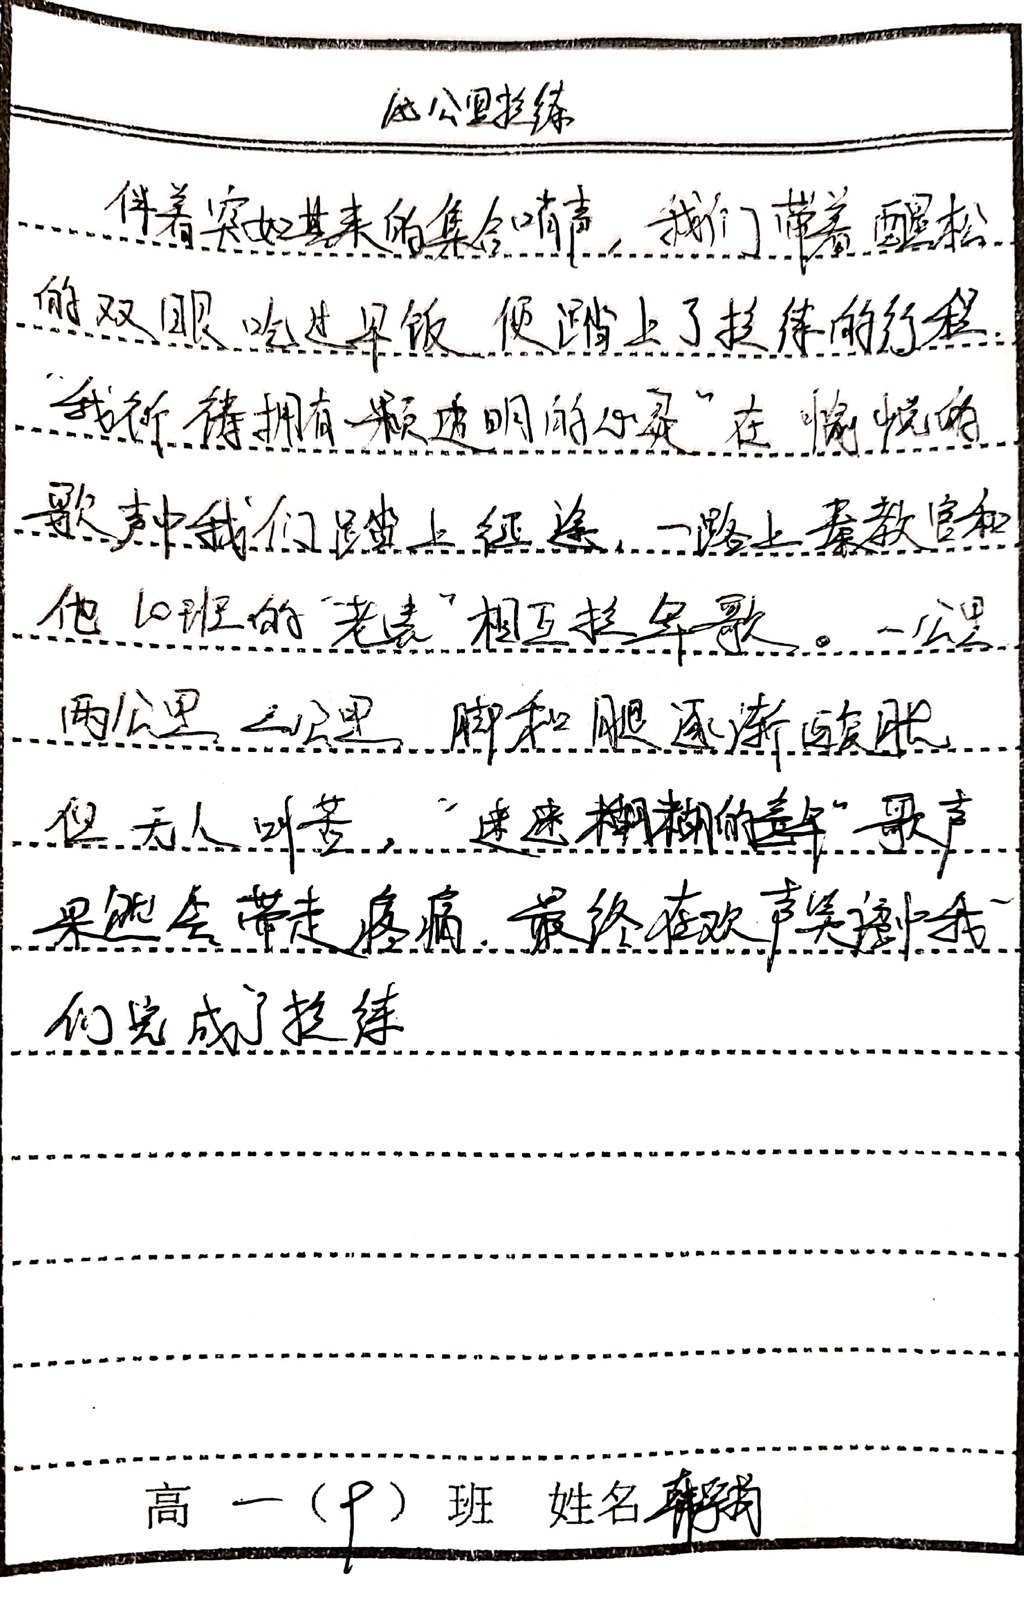 公里拉练
伴着突如其来的集合哨声，我们带着醒松
的双眼吃过早饭 便踏上了拉练的行程.
“我祈祷拥有一颗透明的心灵”在愉悦的
歌声中我们踏上征途，一路上秦教官和
他10班的“老表”相互拉军歌。一公里
两公里 三公里 脚和腿逐渐酸胀
但无人叫苦，“迷迷糊糊的
歌声
果然会带走疼痛.最终在欢声笑语中我
们完成了拉练
高一(9)班 姓名